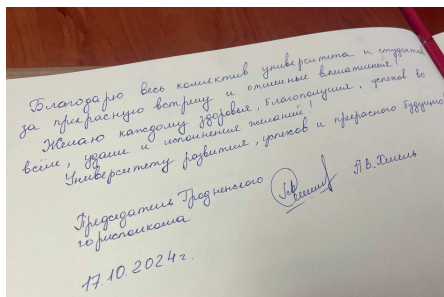 Благодарю весь коллектив университета и студентов
за прекрасную встречу и отличные впечатления!
Желаю каждому здоровья, благополучия, успехов во
всём, удачи и исполнения желаний!
Университету развития, успехов и прекрасного будущего!
Председатель Гродненского
горисполкома
А.В.Хмель
17.10.2024г.